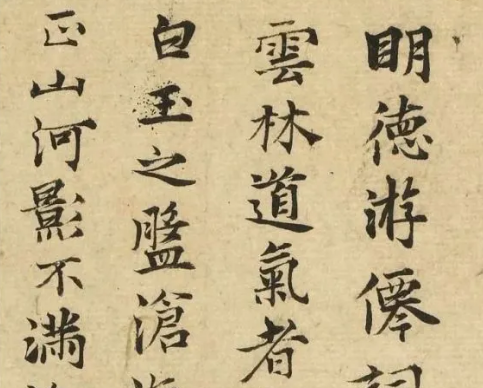 眀德游僊詞
雲林道氣者
白玉之盤滄
正山河影不滿